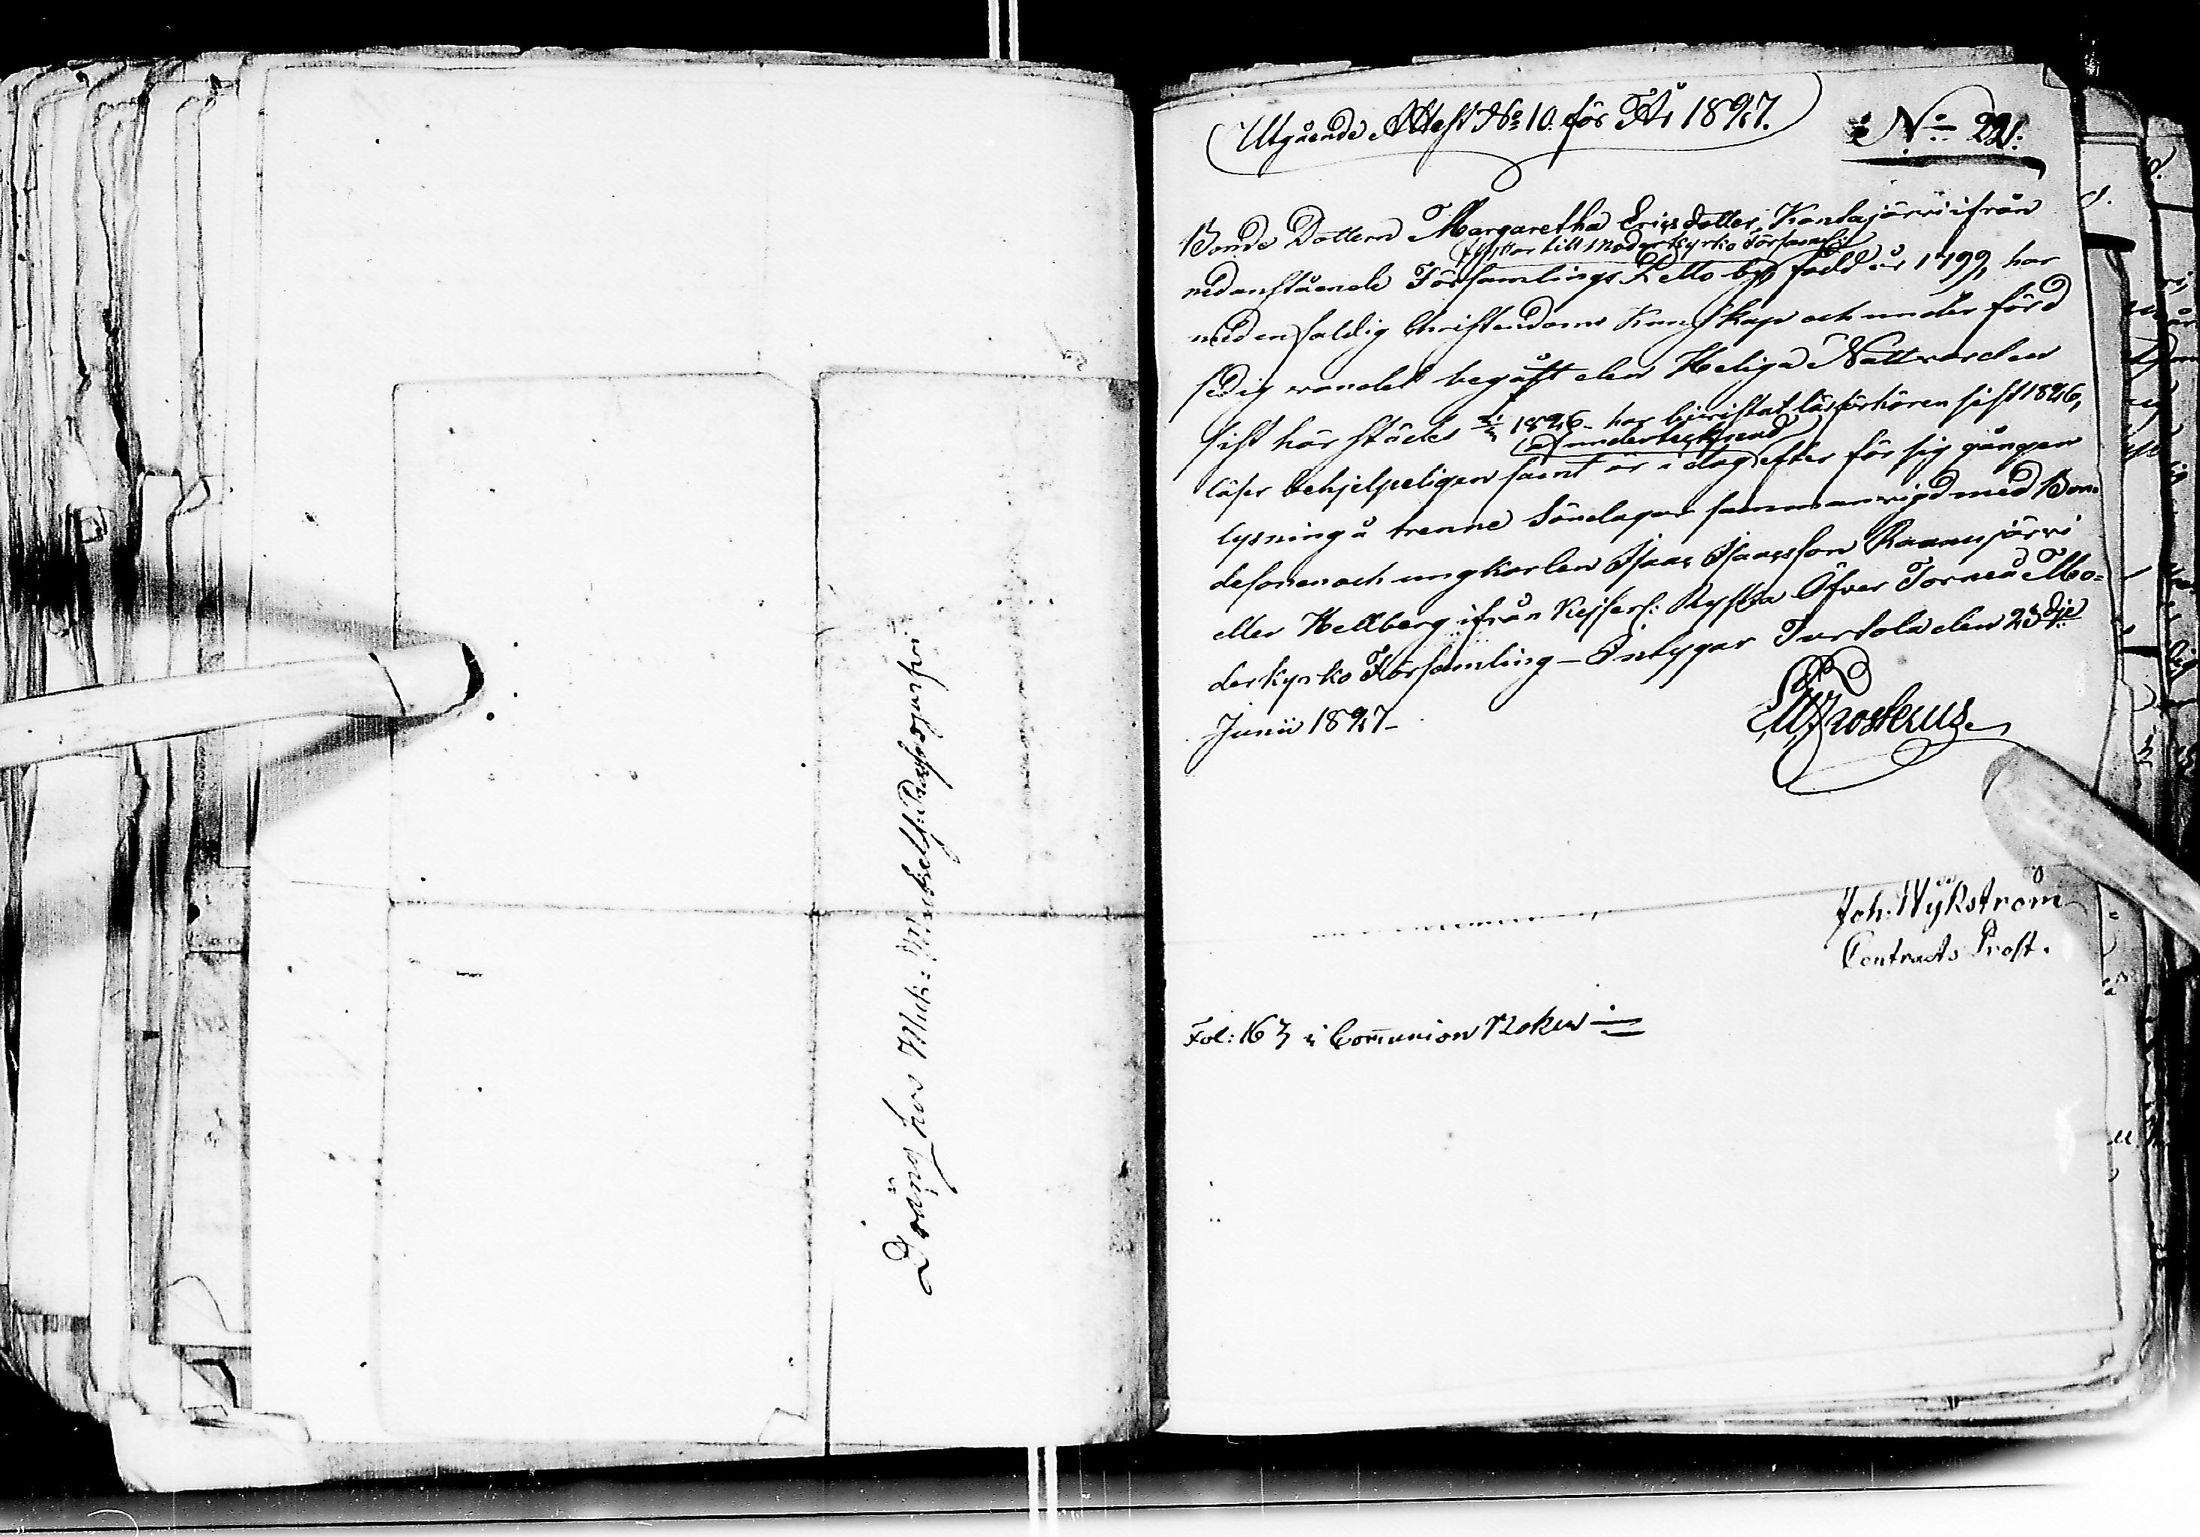 Dräng hos Mick:
Utgående Attest No 10. för År 1827.
No 221.
Bonde Dottern Margaretha Ericsdotter Kantajärvi ifrån
flyttar till Moderkyrko Församl:
nedanstående Församlings Pello by, född år 1799, har
med enfaldig Christendoms Kunskap och under förd
sedig vandel begått den Heliga Nattvarden
sist här städes 1826 - har bivistat läsförhören sist 1826,
af undertecknad
läser behjelpeligen samt är i dag efter för sig gången
lysning å trenne Söndagar sammanvigd med Bon-
desonen och ungkarlen Isaac Isaacsson Raanujärvi
eller Hellberg ifrån Kejserl: Ryska Öfver Torneå Mo-
derkyrko Församling - Intygar Turtola den 23dje
Junii 1827 -
Frosterus
Joh: Wykström
Contracts Prost.
Fol: 163 i Communion Boken